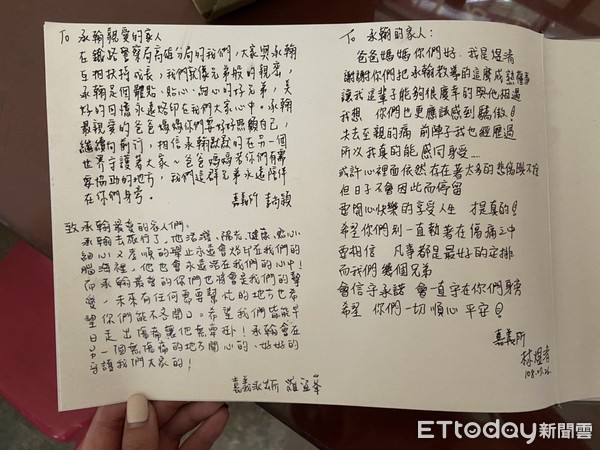 To 承翰親愛的家人
在鐵路警察局高雄分局的我們，大家與承翰
互相扶持成長，我們就像兄弟般的親密，
承翰是個體貼、貼心、細心的好兄弟，美
好的回憶永遠烙印在我們大家心中。承翰
最親愛的爸爸媽媽你們要好好照顧自己，
繼續向前行，相信承翰默默的在另一個
世界守護著大家～爸爸媽媽若你們有需
要協助的地方，我們這群兄弟永遠陪伴
在你們身旁。
嘉義所
致 承翰最愛的家人們：
承翰去旅行了，他活潑、陽光、健康、貼心
細心又孝順的舉止永遠會烙印在我們的
腦海裡，他也會永遠活在我們的心中！
而承翰最愛的你們也將會是我們的摯
愛，未來有任何需要幫忙的地方也希
望你們能不吝開口。希望我們皆能早
日走出傷痛無他無牽掛！承翰會在
另一個無傷痛的地方開心的、好好的
守護我們大家的！
嘉義派出所 羅
To 承翰的家人：
爸爸媽媽你們好 我是煜清
謝謝你們把承翰教導的這麼成熟懂事
讓我這輩子能夠很慶幸的與他相遇
我想 你們也更應該感到驕傲！
失去至親的痛 前陣子我也經歷過
所以我真的能感同身受……
或許心裡面依然存在著太多的悲傷與不捨
但日子不會因此而停留
要開心快樂的享受人生 才是真的！
希望你們別一直執著在傷痛之中
要相信 凡事都是最好的安排
而我們幾個兄弟
會信守承諾 會一直守在你們身旁
希望 你們一切順心 平安！
嘉義所
林煜清
108.07.26
ETtoday新聞雲